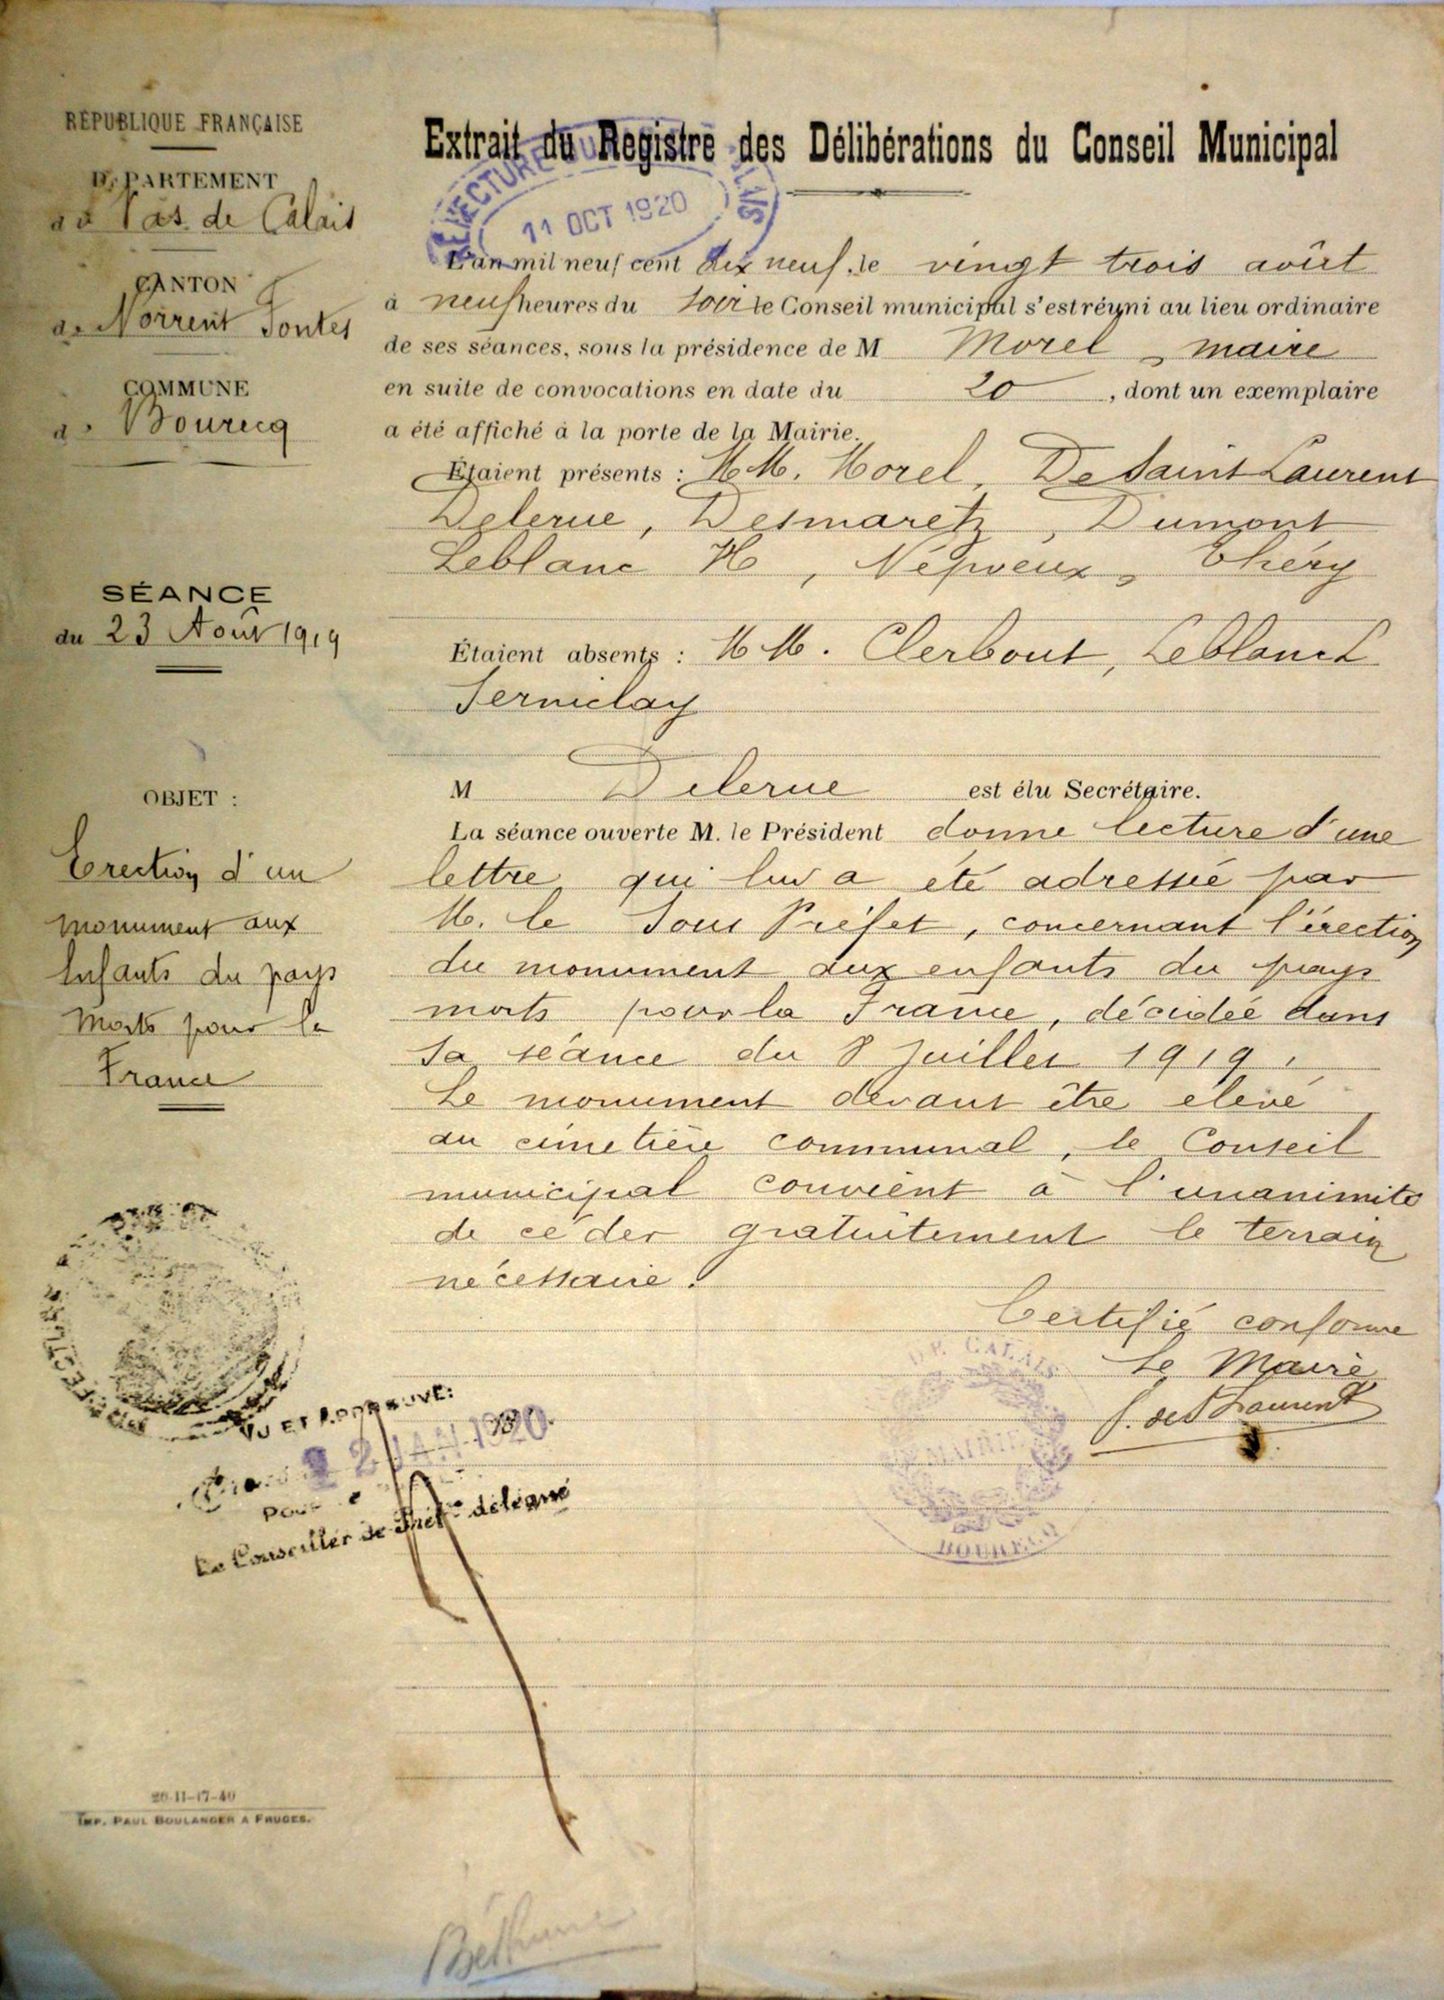 RÉPUBLIQUE FRANÇAISE
DÉPARTEMENT
du Pas de Calais
CANTON
de Norrent Fontes
COMMUNE
de Bourecq
SÉANCE
du 23 Août 1919
OBJET :
Erection d'un
monument aux
Enfants du pays
Morts pour la
France
Extrait du Registre des Délibérations du Conseil Municipal
11 OCT 1920
L'an mil neuf cent dix neuf, le vingt trois août
à neuf heures du soir le Conseil municipal s'est réuni au lieu ordinaire
de ses séances, sous la présidence de M Morel, maire
en suite de convocations en date du 20, dont un exemplaire
a été affiché à la porte de la Mairie.
Étaient présents : MM. Morel, De Saint Laurent
Delerue, Desmaretz, Dumont
Leblanc H, Nepveux, Théry
Étaient absents : MM. Clerbout, Leblanc L
Serniclay
M Delerue est élu Secrétaire.
La séance ouverte M. le Président donne lecture d'une
lettre qui lui a été adressée par
M. le Sous Préfet, concernant l'érection
du monument aux enfants du pays
morts pour la France, décidée dans
sa séance du 8 Juillet 1919.
Le monument devant être élevé
au cimetière communal, le Conseil
municipal convient à l'unanimité
de céder gratuitement le terrain
nécessaire.
Certifié conforme
Le Maire
f. de St Laurent
DE CALAIS
MAIRIE
BOURECQ
VU ET APPROUVÉ:
22 JAN 1920
Le Conseiller de Préf^re délégué
26-11-17-40
IMP. PAUL BOULANGER A FRUGES.
Béthune